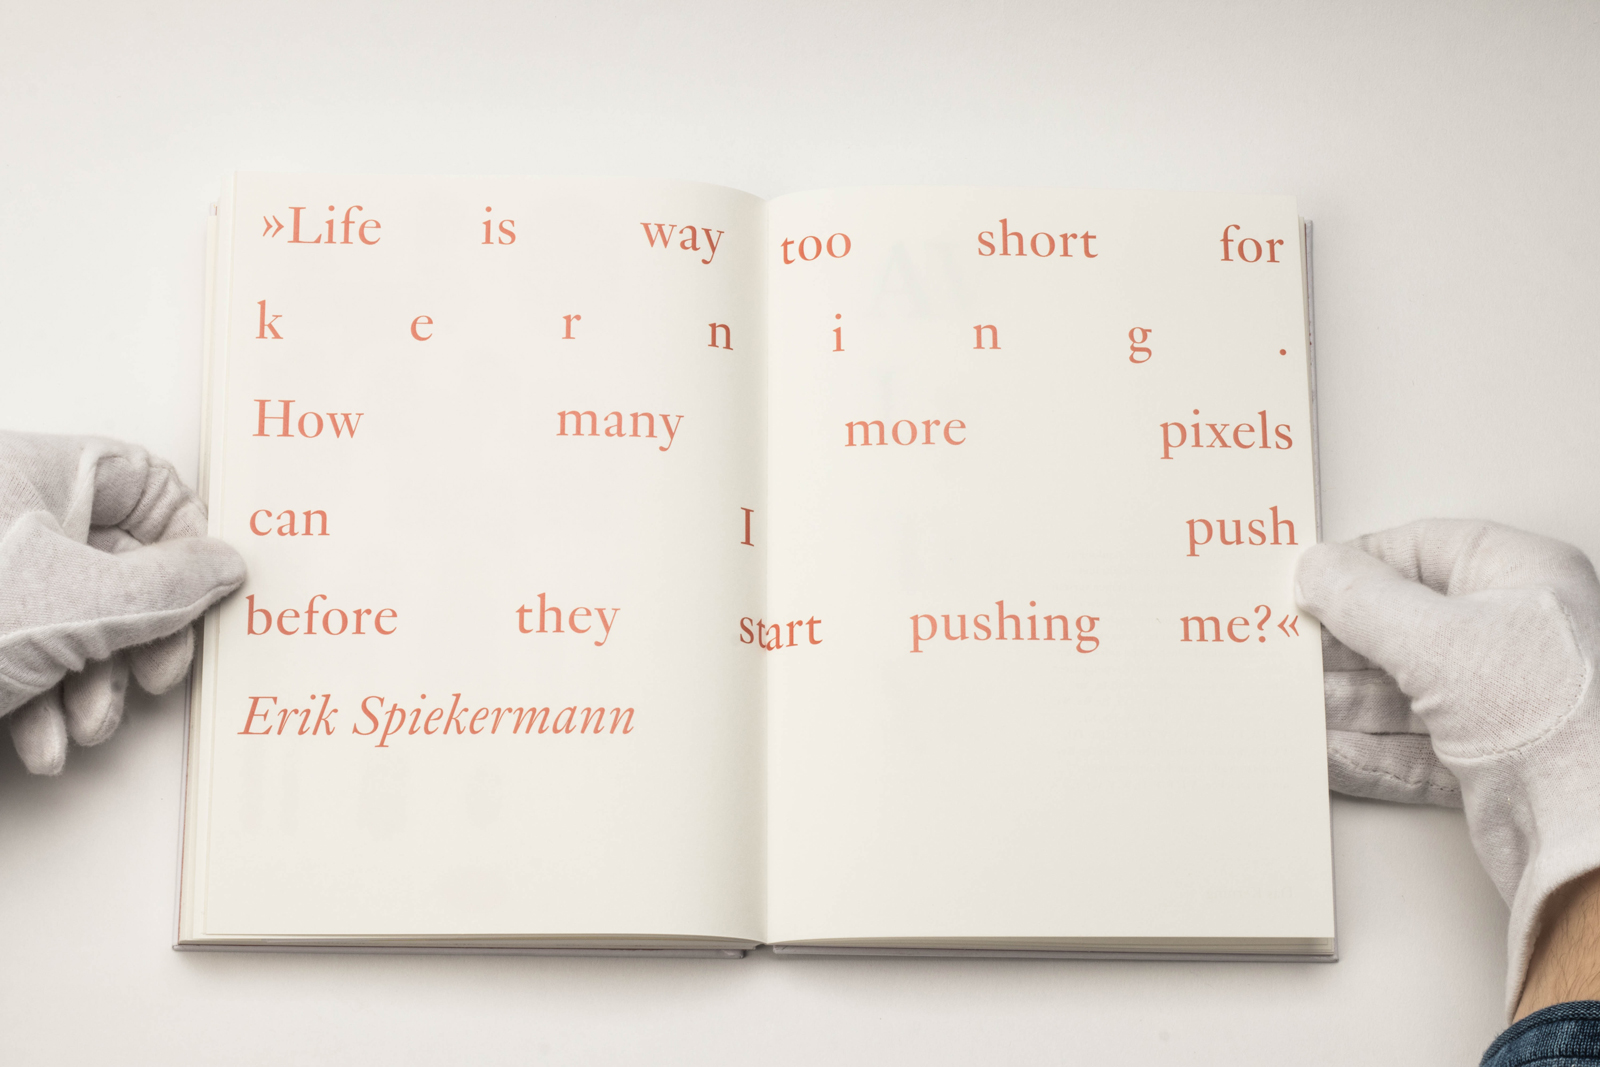 »Life is way too short for
k e r n i n g .
How many more pixels
can I push
before they start pushing me?«
Erik Spiekermann